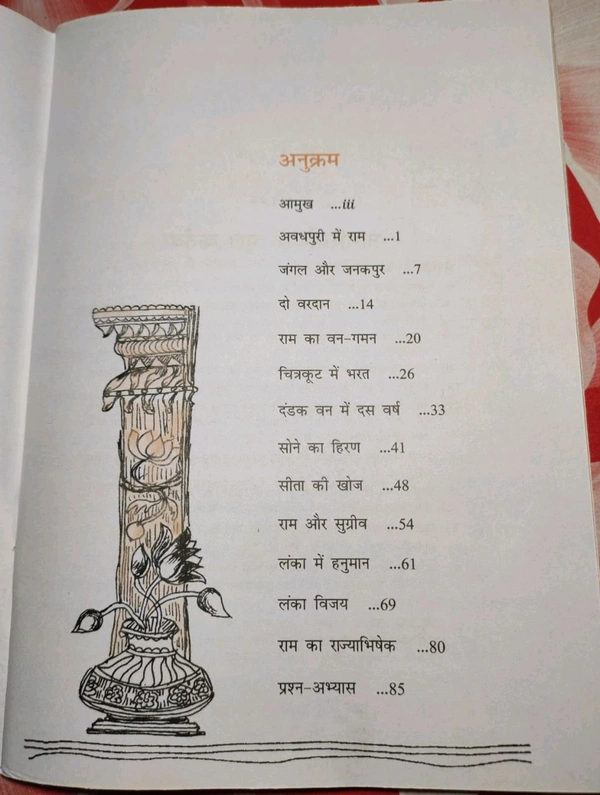 अनुक्रम
आमुख ...iii
अवधपुरी में राम ...1
जंगल और जनकपुर ...7
दो वरदान ...14
राम का वन-गमन ...20
चित्रकूट में भरत ...26
दंडक वन में दस वर्ष ...33
सोने का हिरण ...41
सीता की खोज ...48
राम और सुग्रीव ...54
लंका में हनुमान ...61
लंका विजय ...69
राम का राज्याभिषेक ...80
प्रश्न-अभ्यास ...85